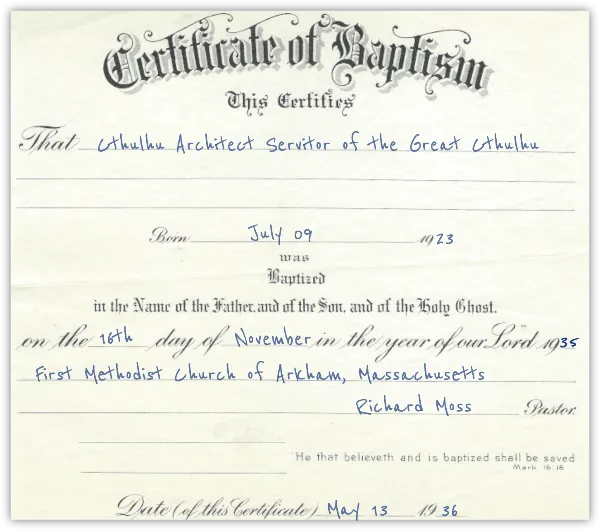 Certificate of Baptism
This Certifies
That Cthulhu Architect Servitor of the Great Cthulhu
Born July 09 1923
was
Baptized
in the Name of the Father, and of the Son, and of the Holy Ghost.
on the 16th day of November in the year of our Lord 1935
First Methodist Church of Arkham, Massachusetts
Richard Moss Pastor.
"He that believeth and is baptized shall be saved
Mark 16:16
Date (of this Certificate) May 13 1936